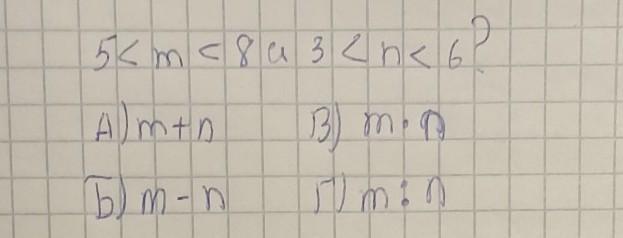 5 < m < 8 а 3 < n < 6?
А) m + n В) m · n
Б) m - n Г) m : n